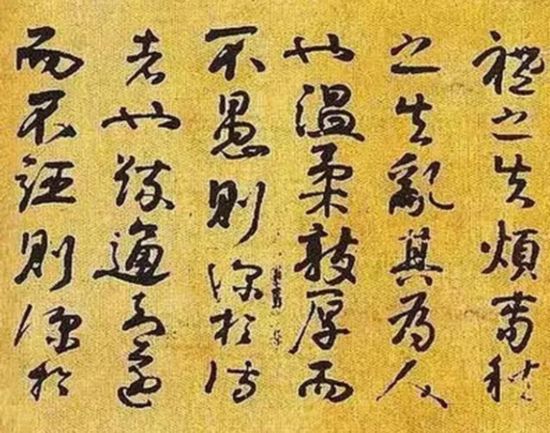 禮之失煩春秋
之失亂其為人
也溫柔敦厚而
不愚則深於詩
者也疏通知遠
而不誣則深於